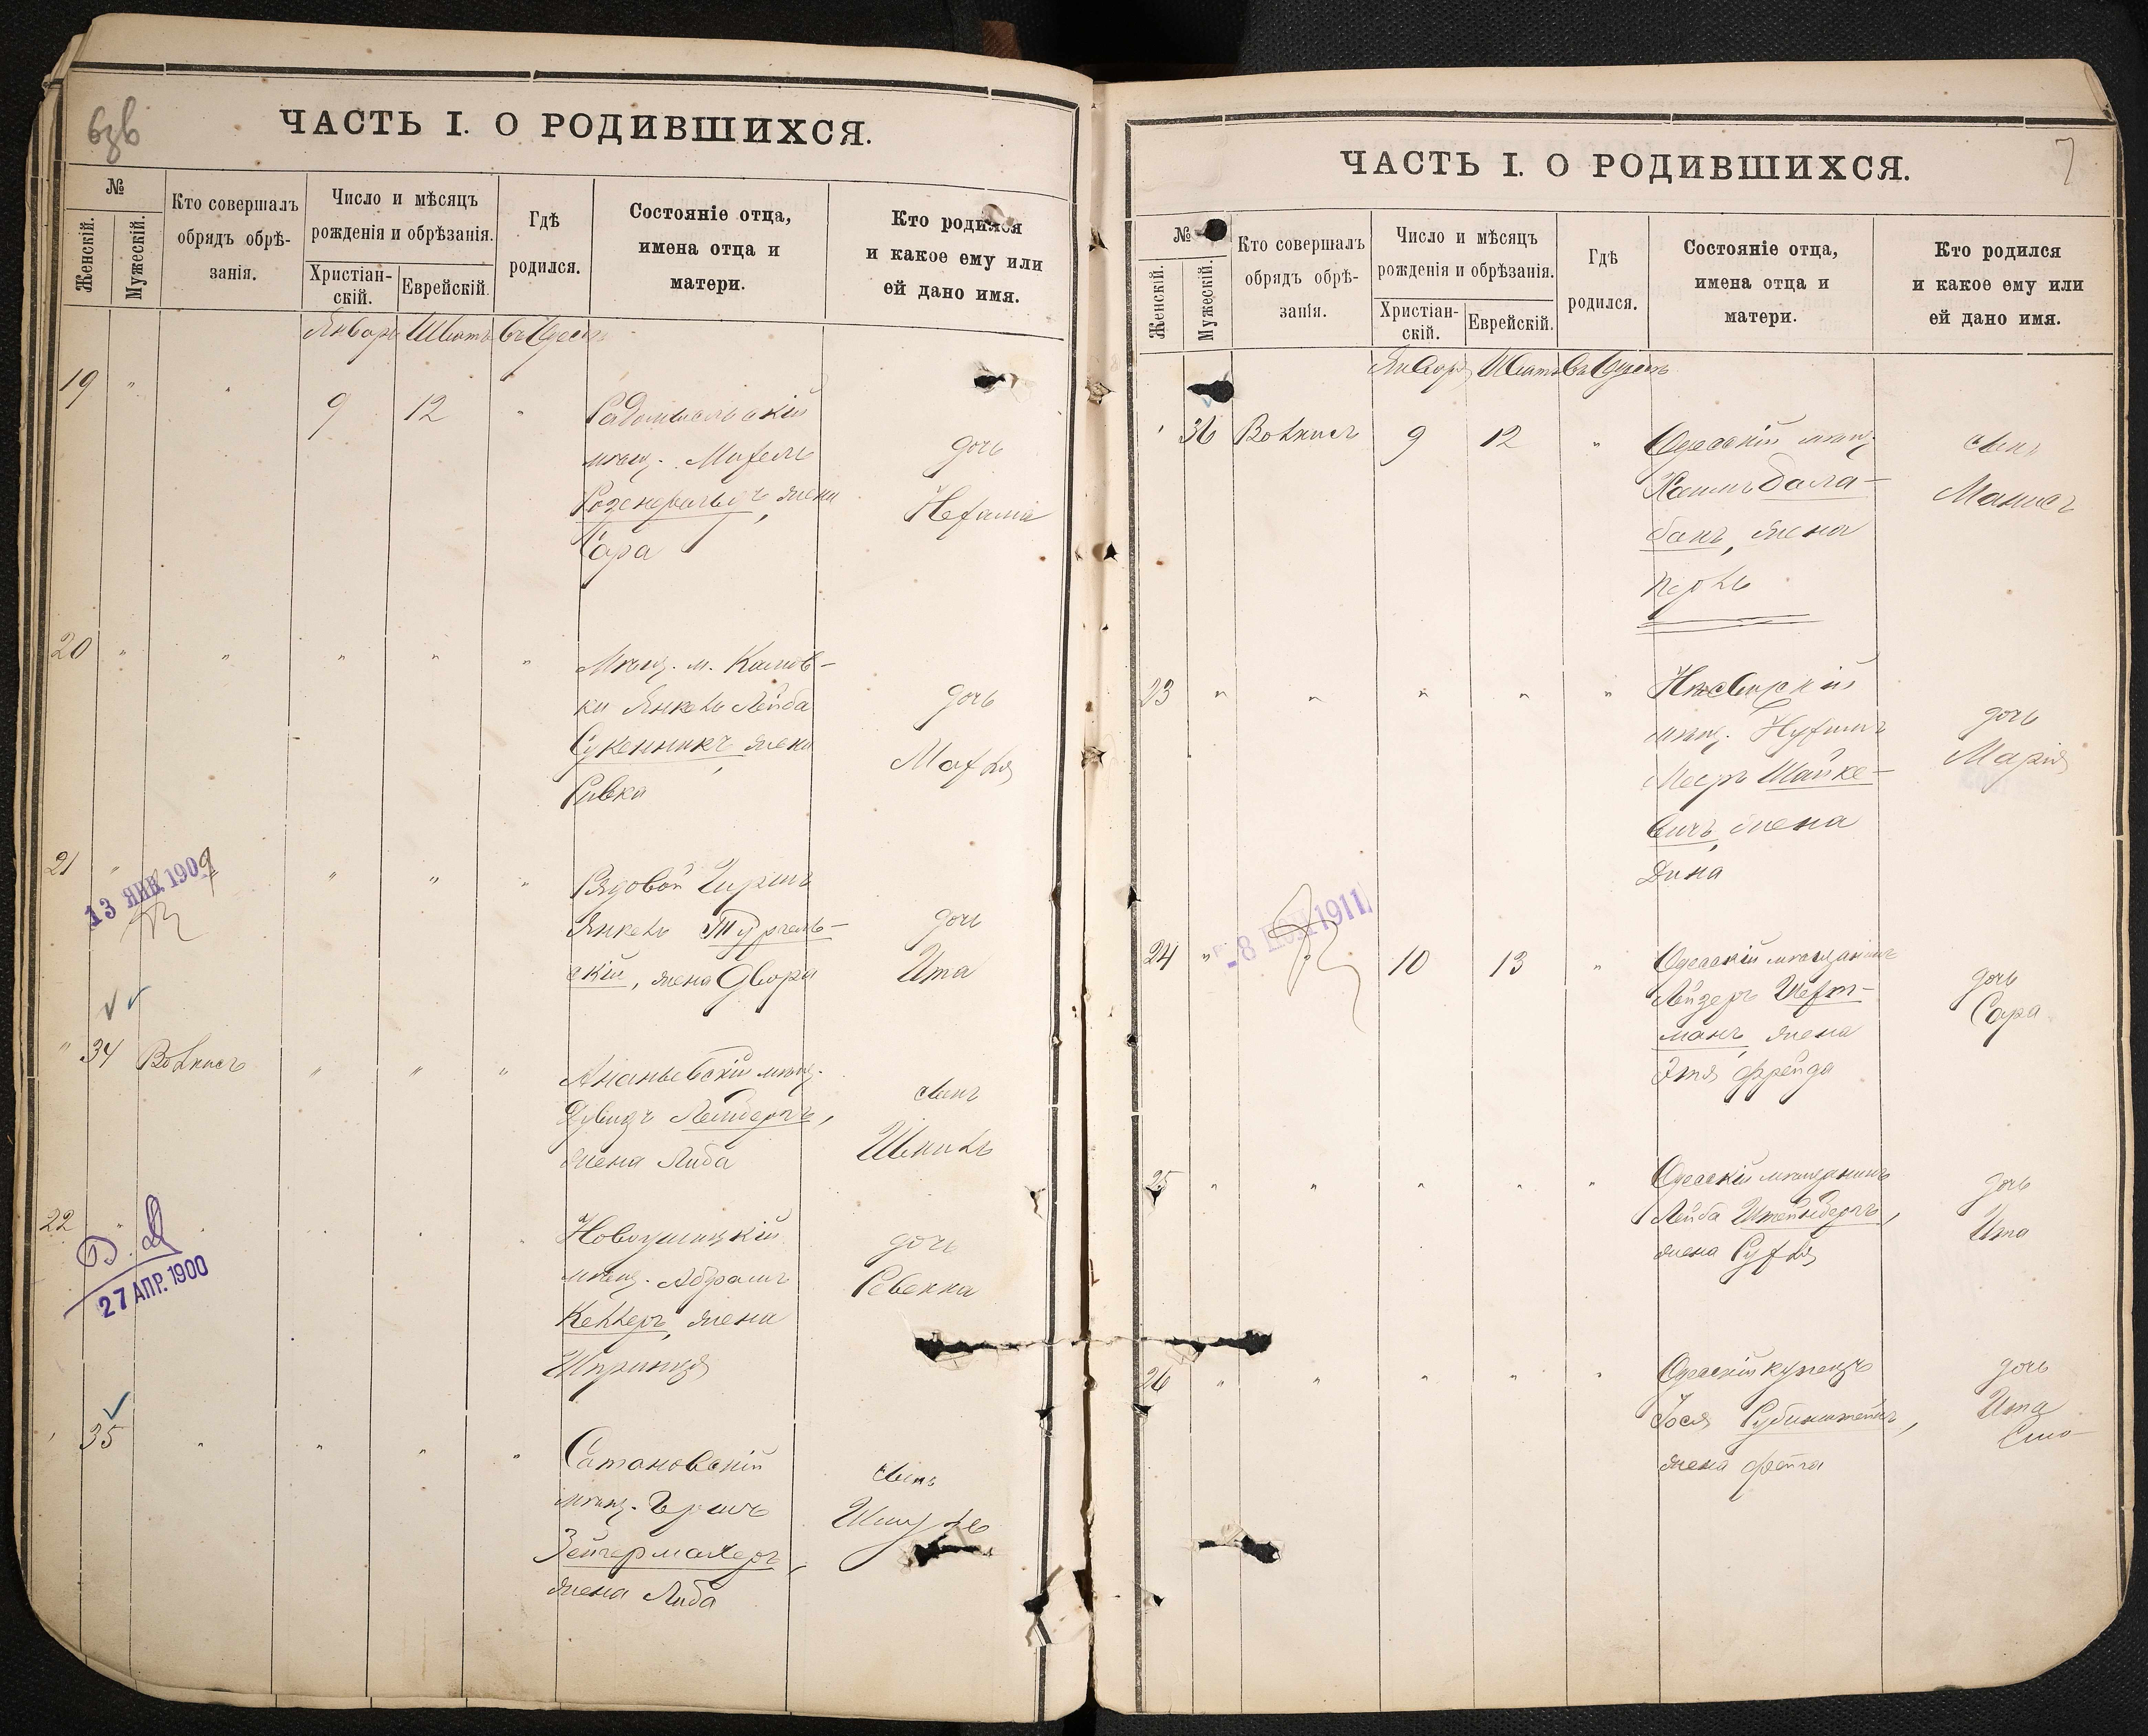 ЧАСТЬ I. О РОДИВШИХСЯ.
№
Женскій.
Мужескій.
Кто совершалъ
обрядъ обрѣ-
занія.
Число и мѣсяцъ
рожденія и обрѣзанія.
Христіан-
скій.
Еврейскій.
Гдѣ
родился.
Состояніе отца,
имена отца и
матери.
Кто родился
и какое ему или
ей дано имя.
Январь Шватъ въ Одессѣ
19 " " 9 12 "
Радомысльскій
мѣщ.
Розенфельдъ, жена
Сара
дочь
Нехама
20 " " " " "
Мѣщ. м.
ки Янкель Лейба
Сукенникъ, жена
Ривка
дочь
Махля
21 " " " "
13 ЯНВ. 1909
Рядовой
Янкель
скій, жена Двора
дочь
Ита
" 34 " " "
Ананьевскій мѣщ.
Дувидъ
жена Либа
сынъ
22 "
27 АПР. 1900
Новоушицкій
мѣщ. Абрамъ
Келлеръ, жена
Шпринця
дочь
Ревекка
35 " " " "
Сатановскій
мѣщ. Гершъ
Зейгермахеръ,
жена Либа
сынъ
ЧАСТЬ I. О РОДИВШИХСЯ.
7
№
Женскій.
Мужескій.
Кто совершалъ
обрядъ обрѣ-
занія.
Число и мѣсяцъ
рожденія и обрѣзанія.
Христіан-
скій.
Еврейскій.
Гдѣ
родился.
Состояніе отца,
имена отца и
матери.
Кто родился
и какое ему или
ей дано имя.
Январь Шватъ въ Одессѣ
36 9 12 "
Одесскій мѣщ.
Хаимъ Бала-
банъ, жена
Перль
сынъ
23 " " " " "
Несвирскій
мѣщ. Нухимъ
Мееръ Шайке-
вичъ, жена
Дина
дочь
Марія
24 " 10 13 "
1911
Одесскій мѣщанинъ
Лейзеръ
манъ, жена
Этя Фрейда
дочь
Сара
25 " " " " "
Одесскій мѣщанинъ
Лейба Штейнбергъ,
жена Рухля
дочь
Ита
26 " " " " "
Одесскій купецъ
Іося Рубинштейнъ,
жена Фейга
дочь
Ита